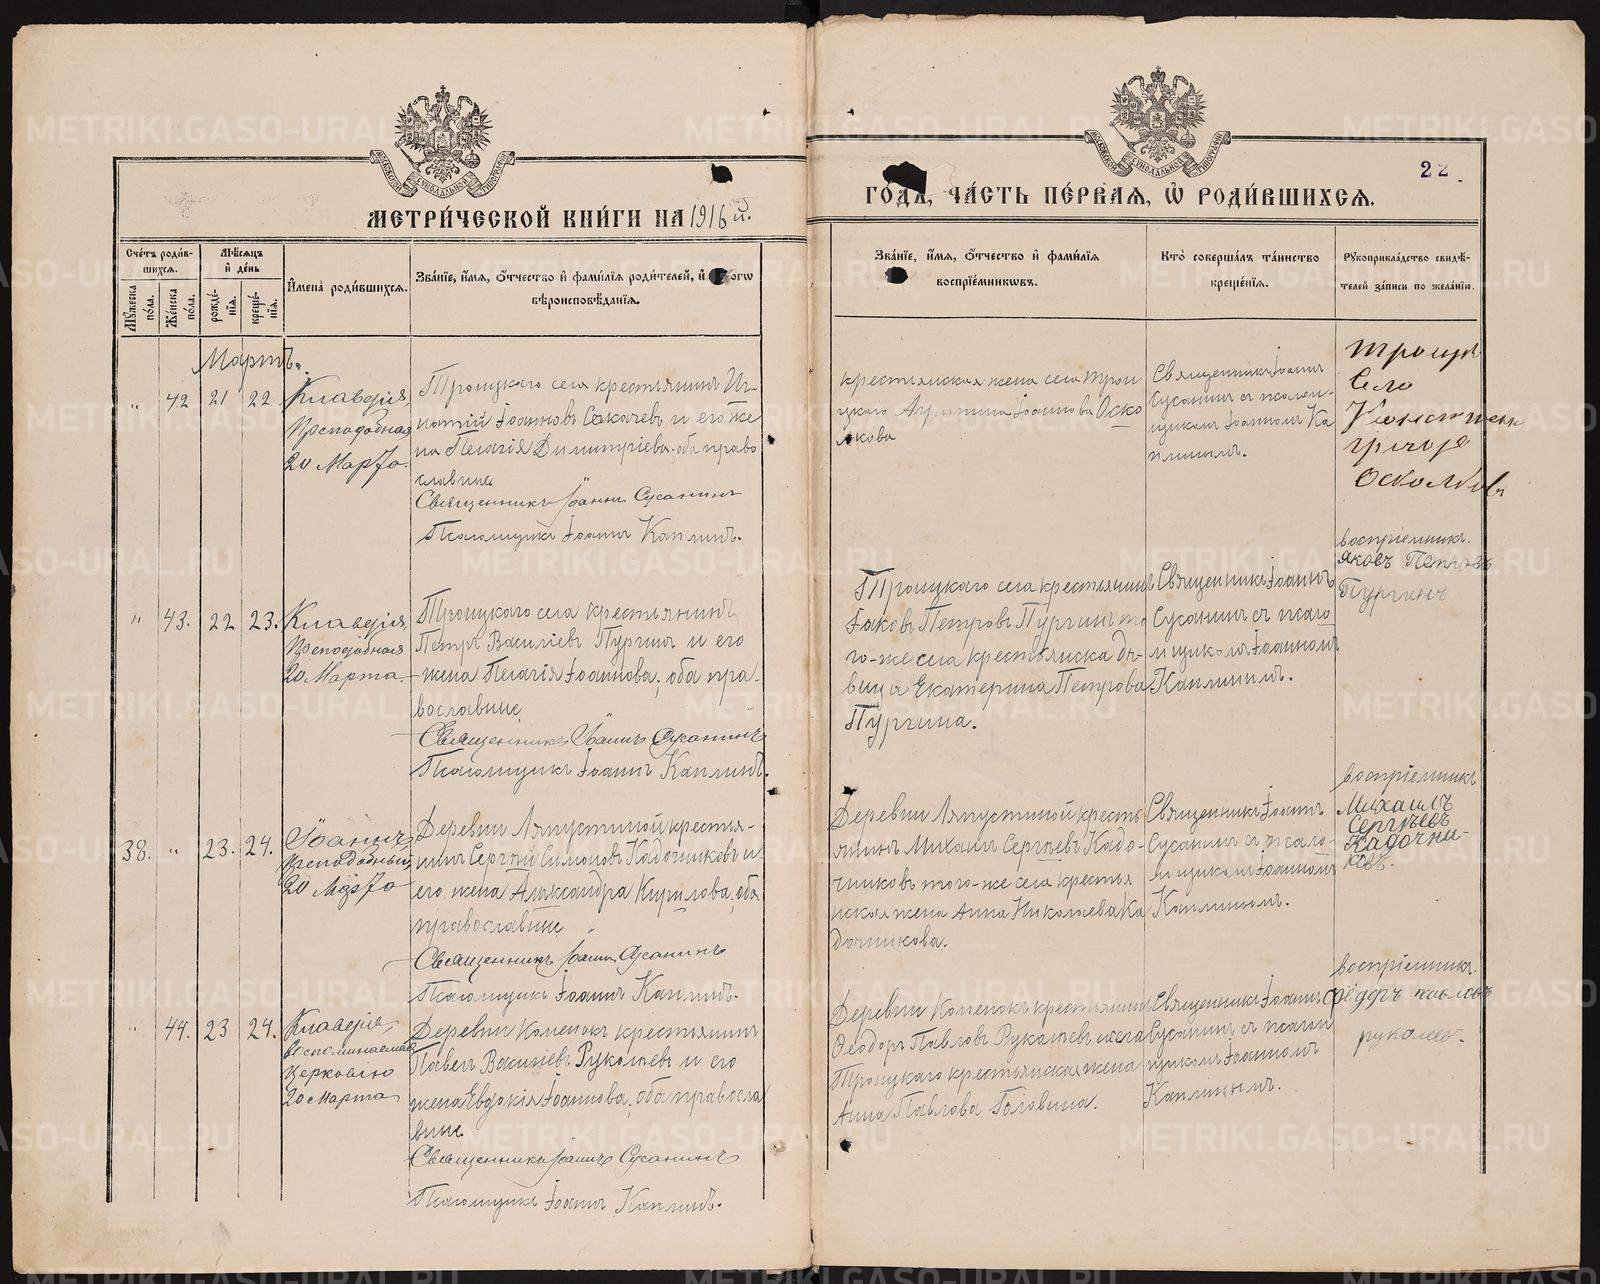 МЕТРИ́ЧЕСКОЙ КНИ́ГИ НА 1916 й.
Сче́тъ роди́в-
шихся.
Мѣ́сяцъ
и҆ де́нь
Му́жеска
по́ла.
Же́нска
по́ла.
рожде́-
нія.
креще́-
нія.
И҆мена̀ роди́вшихся.
Зва́ніе, и҆́мя, ѻ҆́тчество и҆ фами́лія роди́телей, и҆
вѣроисповѣ́данія.
Мартъ.
" 42 21 22
Клавдія,
Преподобная
20 Марта.
Троицкаго села крестьянинъ Иг-
натій Іоанновъ Сакачевъ и его же
на Пелагія Димитріева, оба право
славные
Священникъ Іоаннъ Сусанинъ
Псаломщикъ Іоаннъ Каплинъ.
" 43. 22 23.
Клавдія,
Преподобная
20 Марта.
Троицкаго села крестьянинъ
Петръ Василіевъ Пургинъ и его
жена Пелагія Іоаннова, оба пра-
вославные
Священникъ Іоаннъ Сусанинъ
Псаломщикъ Іоаннъ Каплинъ.
38. " 23. 24.
Іоаннъ,
преподобный,
20 Марта
Деревни Ляпустиной крестья-
нинъ Сергѣй Симоновъ Кадочниковъ и
его жена Александра Кирилова, оба
православные
Священникъ Іоаннъ Сусанинъ
Псаломщикъ Іоаннъ Каплинъ.
" 44. 23 24.
Клавдія,
воспоминаемая
Церковію
20 Марта
Деревни Коменокъ крестьянинъ
Павелъ Василіевъ Руколѣевъ и его
жена Евдокія Іоаннова, оба правосла
вные
Священникъ Іоаннъ Сусанинъ
Псаломщикъ Іоаннъ Каплинъ.
22.
ГО́ДЪ, ЧА́СТЬ ПЕ́РВАЯ, Ѡ҆ РОДИ́ВШИХСЯ.
Зва́ніе, и҆́мя, ѻ҆́тчество и҆ фами́лія
воспріе́мниковъ.
Кто̀ соверша́лъ та́инство
креще́нія.
Рукоприкла́дство свидѣ́-
телей за́писи по жела́нію.
крестьянская жена села Трои
цкаго Іоаннова Оско
лкова
Священникъ Іоаннъ
Сусанинъ съ псалом-
щикомъ Іоанномъ Ка
плинымъ.
Троицк
Село
Григоре
Осколков
Троицкаго села крестьянинъ
Іаковъ Петровъ Пургинъ то
го-же села крестьянска дѣ-
вица Екатерина Петрова
Пургина.
Священникъ Іоаннъ
Сусанинъ съ псало
мщикомъ Іоанномъ
Каплинымъ.
воспріемникъ.
Яковъ Петровъ
Пургинъ
Деревни Ляпустиной кресть
янинъ Михаилъ Сергѣевъ Кадо-
чниковъ того-же села крестья
нская жена Анна Николаева Ка
дочникова.
Священникъ Іоаннъ
Сусанинъ съ псало-
мщикомъ Іоанномъ
Каплинымъ.
воспріемникъ
Михаилъ
Сергѣевъ
Кадочни-
ковъ.
Деревни Коменокъ крестьянинъ
Ѳеодоръ Павловъ Руколѣевъ и села
Троицкаго крестьянская жена
Анна Павлова Головина.
Священникъ Іоаннъ
Сусанинъ съ псалом
щикомъ Іоанномъ
Каплинымъ.
воспріемникъ.
Фёдоръ павловъ
руколеев.
METRIKI.GASO-URAL.RU